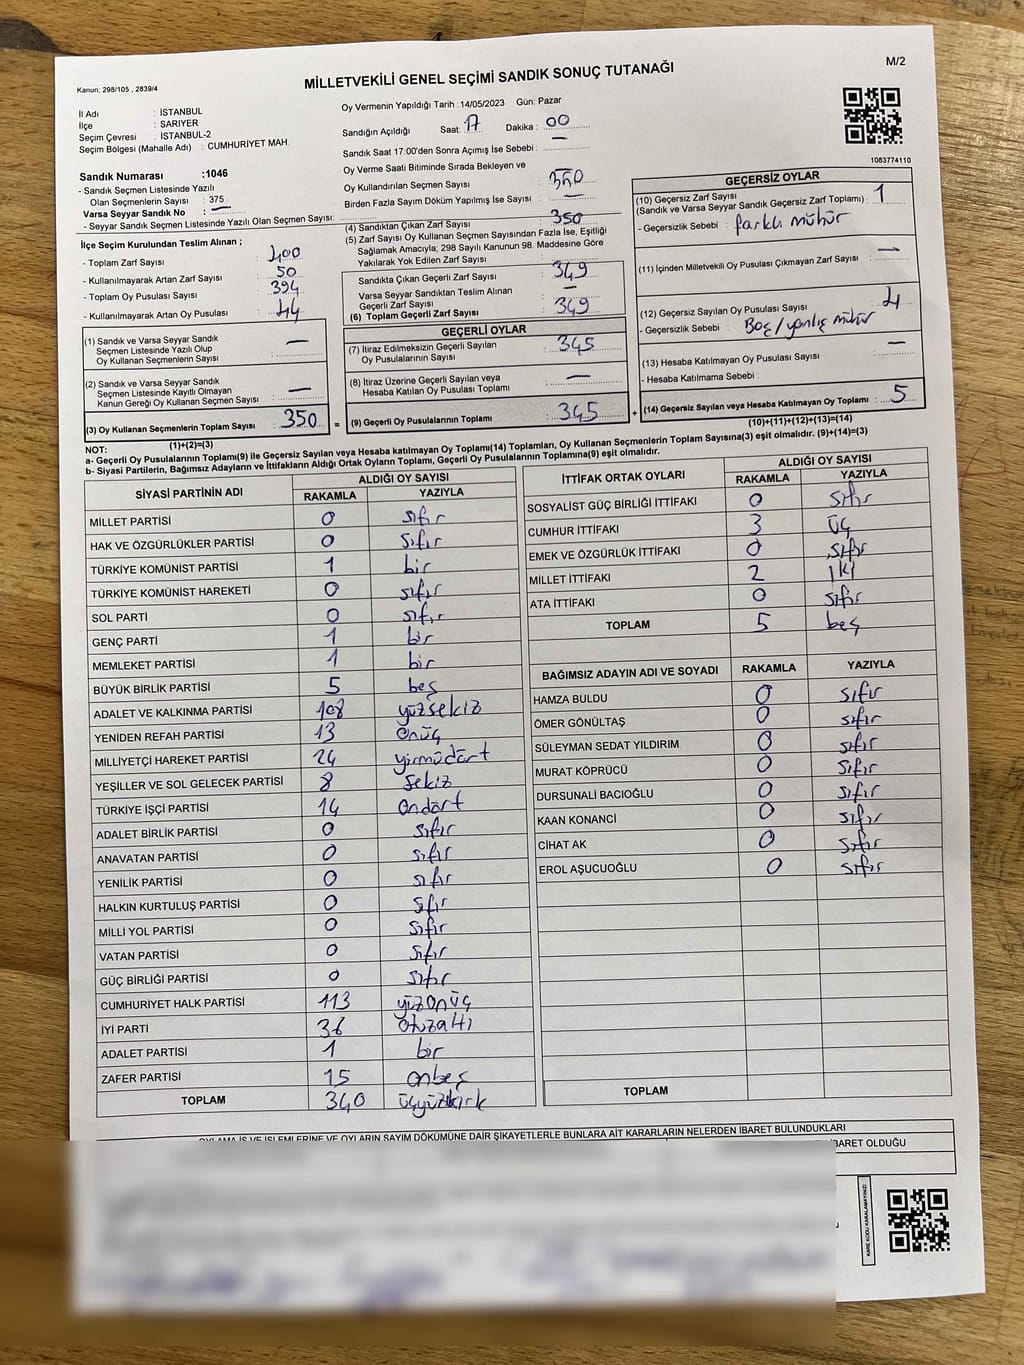 Kanun; 298/105 , 2839/4
MİLLETVEKİLİ GENEL SEÇİMİ SANDIK SONUÇ TUTANAĞI
M/2
İl Adı : İSTANBUL
İlçe : SARIYER
Seçim Çevresi : İSTANBUL-2
Seçim Bölgesi (Mahalle Adı) : CUMHURİYET MAH.
Oy Vermenin Yapıldığı Tarih :14/05/2023 Gün: Pazar
Sandığın Açıldığı Saat: 17 Dakika : 00
Sandık Saat 17:00'den Sonra Açımış İse Sebebi : —
Oy Verme Saati Bitiminde Sırada Bekleyen ve
Oy Kullandırılan Seçmen Sayısı : 350
Birden Fazla Sayım Döküm Yapılmış İse Sayısı : —
1083774110
Sandık Numarası :1046
- Sandık Seçmen Listesinde Yazılı
Olan Seçmenlerin Sayısı : 375
Varsa Seyyar Sandık No : —
- Seyyar Sandık Seçmen Listesinde Yazılı Olan Seçmen Sayısı:
İlçe Seçim Kurulundan Teslim Alınan ;
- Toplam Zarf Sayısı : 400
- Kullanılmayarak Artan Zarf Sayısı : 50
- Toplam Oy Pusulası Sayısı : 394
- Kullanılmayarak Artan Oy Pusulası : 44
(1) Sandık ve Varsa Seyyar Sandık
Seçmen Listesinde Yazılı Olup
Oy Kullanan Seçmenlerin Sayısı : —
(2) Sandık ve Varsa Seyyar Sandık
Seçmen Listesinde Kayıtlı Olmayan
Kanun Gereği Oy Kullanan Seçmen Sayısı : —
(3) Oy Kullanan Seçmenlerin Toplam Sayısı : 350 =
(1)+(2)=(3)
(4) Sandıktan Çıkan Zarf Sayısı : 350
(5) Zarf Sayısı Oy Kullanan Seçmen Sayısından Fazla İse, Eşitliği
Sağlamak Amacıyla; 298 Sayılı Kanunun 98. Maddesine Göre
Yakılarak Yok Edilen Zarf Sayısı :
Sandıkta Çıkan Geçerli Zarf Sayısı : 349
Varsa Seyyar Sandıktan Teslim Alınan
Geçerli Zarf Sayısı : —
(6) Toplam Geçerli Zarf Sayısı : 349
GEÇERLİ OYLAR
(7) İtiraz Edilmeksizin Geçerli Sayılan
Oy Pusulalarının Sayısı : 345
(8) İtiraz Üzerine Geçerli Sayılan veya
Hesaba Katılan Oy Pusulası Toplamı : —
(9) Geçerli Oy Pusulalarının Toplamı : 345 +
GEÇERSİZ OYLAR
(10) Geçersiz Zarf Sayısı
(Sandık ve Varsa Sandık Geçersiz Zarf Toplamı) : 1
- Geçersizlik Sebebi : farklı mühür
(11) İçinden Milletvekili Oy Pusulası Çıkmayan Zarf Sayısı : —
(12) Geçersiz Sayılan Oy Pusulası Sayısı : 4
- Geçersizlik Sebebi : Boş / yanlış mühür
(13) Hesaba Katılmayan Oy Pusulası Sayısı : —
- Hesaba Katılmama Sebebi :
(14) Geçersiz Sayılan veya Hesaba Katılmayan Oy Toplamı : 5
(10)+(11)+(12)+(13)=(14)
NOT:
a- Geçerli Oy Pusulalarının Toplamı(9) ile Geçersiz Sayılan veya Hesaba katılmayan Oy Toplamı(14) Toplamları, Oy Kullanan Seçmenlerin Toplam Sayısına(3) eşit olmalıdır. (9)+(14)=(3)
b- Siyasi Partilerin, Bağımsız Adayların ve İttifakların Aldığı Ortak Oyların Toplamı, Geçerli Oy Pusulalarının Toplamına(9) eşit olmalıdır.
SİYASİ PARTİNİN ADI ALDIĞI OY SAYISI
RAKAMLA YAZIYLA
MİLLET PARTİSİ 0 sıfır
HAK VE ÖZGÜRLÜKLER PARTİSİ 0 sıfır
TÜRKİYE KOMÜNİST PARTİSİ 1 bir
TÜRKİYE KOMÜNİST HAREKETİ 0 sıfır
SOL PARTİ 0 sıfır
GENÇ PARTİ 1 bir
MEMLEKET PARTİSİ 1 bir
BÜYÜK BİRLİK PARTİSİ 5 beş
ADALET VE KALKINMA PARTİSİ 108 yüzsekiz
YENİDEN REFAH PARTİSİ 13 onüç
MİLLİYETÇİ HAREKET PARTİSİ 24 yirmidört
YEŞİLLER VE SOL GELECEK PARTİSİ 8 sekiz
TÜRKİYE İŞÇİ PARTİSİ 14 ondört
ADALET BİRLİK PARTİSİ 0 sıfır
ANAVATAN PARTİSİ 0 sıfır
YENİLİK PARTİSİ 0 sıfır
HALKIN KURTULUŞ PARTİSİ 0 sıfır
MİLLİ YOL PARTİSİ 0 sıfır
VATAN PARTİSİ 0 sıfır
GÜÇ BİRLİĞİ PARTİSİ 0 sıfır
CUMHURİYET HALK PARTİSİ 113 yüzonüç
İYİ PARTİ 36 otuzaltı
ADALET PARTİSİ 1 bir
ZAFER PARTİSİ 15 onbeş
TOPLAM 340 üçyüzkırk
İTTİFAK ORTAK OYLARI ALDIĞI OY SAYISI
RAKAMLA YAZIYLA
SOSYALİST GÜÇ BİRLİĞİ İTTİFAKI 0 sıfır
CUMHUR İTTİFAKI 3 üç
EMEK VE ÖZGÜRLÜK İTTİFAKI 0 sıfır
MİLLET İTTİFAKI 2 iki
ATA İTTİFAKI 0 sıfır
TOPLAM 5 beş
BAĞIMSIZ ADAYIN ADI VE SOYADI RAKAMLA YAZIYLA
HAMZA BULDU 0 sıfır
ÖMER GÖNÜLTAŞ 0 sıfır
SÜLEYMAN SEDAT YILDIRIM 0 sıfır
MURAT KÖPRÜCÜ 0 sıfır
DURSUNALİ BACIOĞLU 0 sıfır
KAAN KONANCİ 0 sıfır
CİHAT AK 0 sıfır
EROL AŞUCUOĞLU 0 sıfır
TOPLAM
OYLAMA İŞ VE İŞLEMLERİNE VE OYLARIN SAYIM DÖKÜMÜNE DAİR ŞİKAYETLERLE BUNLARA AİT KARARLARIN NELERDEN İBARET BULUNDUKLARI
İBARET OLDUĞU
KARE KODU KARALAMAYINIZ!